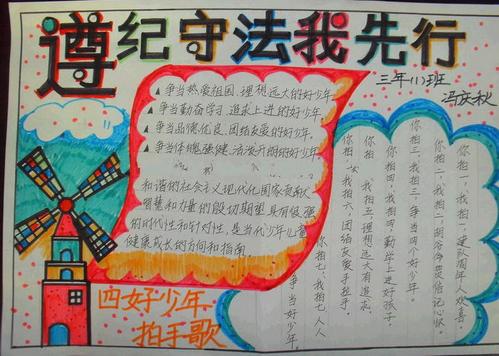 遵纪守法我先行
三年(1)班
冯庆秋
▲争当热爱祖国、理想远大的好少年
▲争当勤奋学习、追求上进的好少年
▲争当品德优良、团结友爱的好少年
▲争当体魄强健、活泼开朗的好少年
和谐的社会主义现代化国家贡献
智慧和力量的殷切期望具有很强
的时代性和针对性,是当代少年儿童
健康成长的方向和指南
四好少年
拍手歌
你拍一,我拍一,建队周年人欢喜。
你拍二,我拍二,胡爷爷贺信记心怀。
你拍三,我拍三,争当四个好少年。
你拍四,我拍四,勤学上进好孩子。
你拍五,我拍五,理想远大有追求。
你拍六,我拍六,团结友爱手拉手。
你拍七,我拍七,人人
争当好少年。